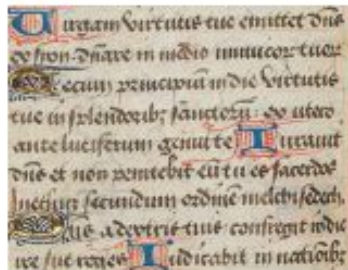 Uirgam virtutis tue emittet dns
ex syon dnare in medio inimicor tuor
Tecum principiu in die virtutis
tue in splendoribz sanctoru ex utero
ante luciferum genui te Iuravit
dns et non penitebit eu tu es sacerdos
ineternu secundum ordine melchisedech
Dns a dextris tuis confregit in die
ire sue reges Iudicabit in nationibz